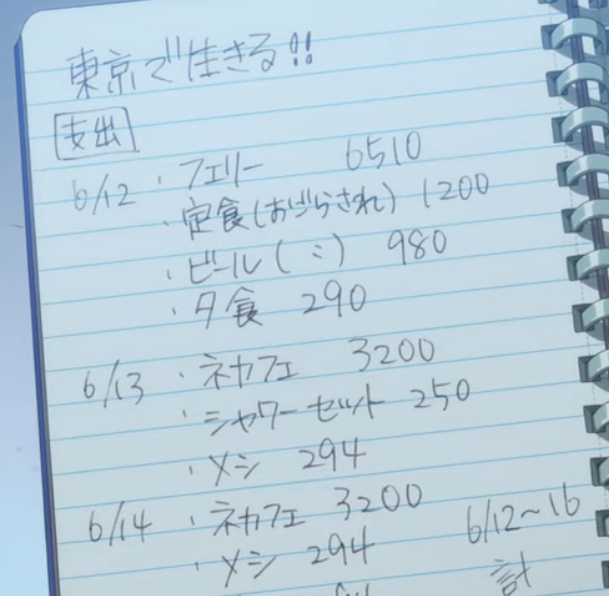 東京で生きる!!
支出
6/12 ・フェリー 6510
・定食(おごらされ) 1200
・ビール(〃) 980
・夕食 290
6/13 ・ネカフェ 3200
・シャワーセット 250
・メシ 294
6/14 ・ネカフェ 3200
・メシ 294
6/12~16
計